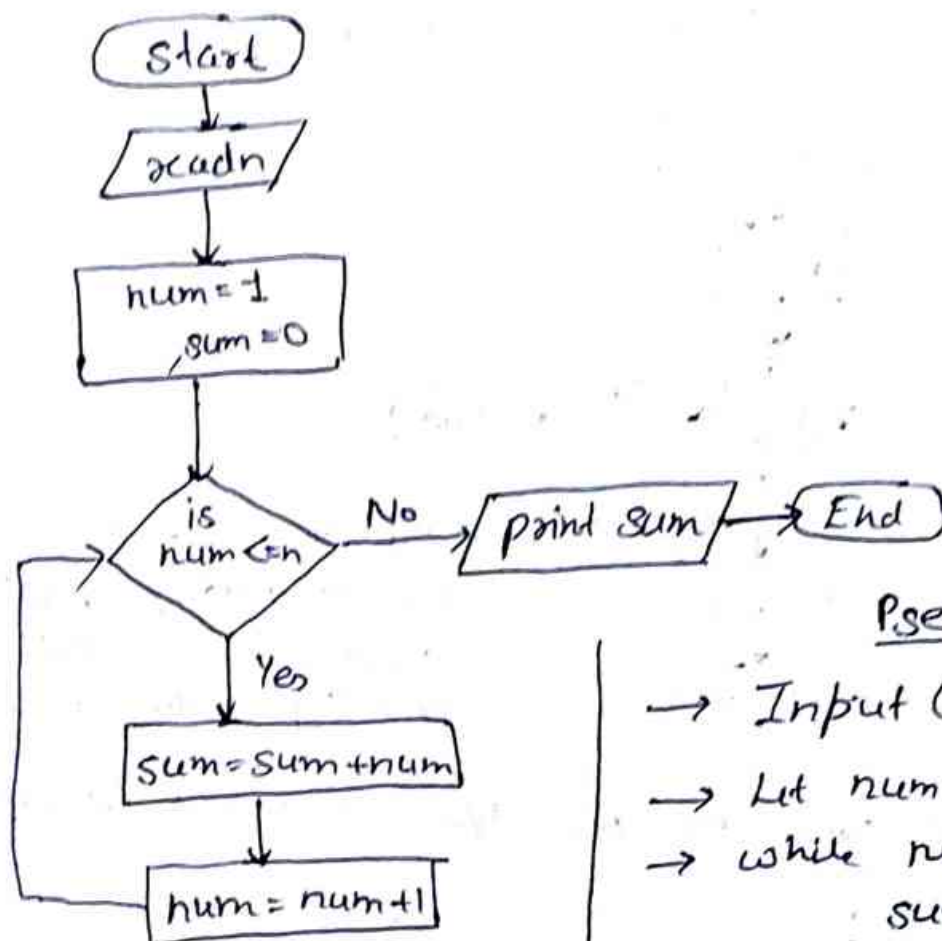 start
readn
num=1
sum=0
is
num<=n
No
print sum
End
Yes
sum=sum+num
num=num+1
Pse
→ Input (
→ Let num
→ while n
su